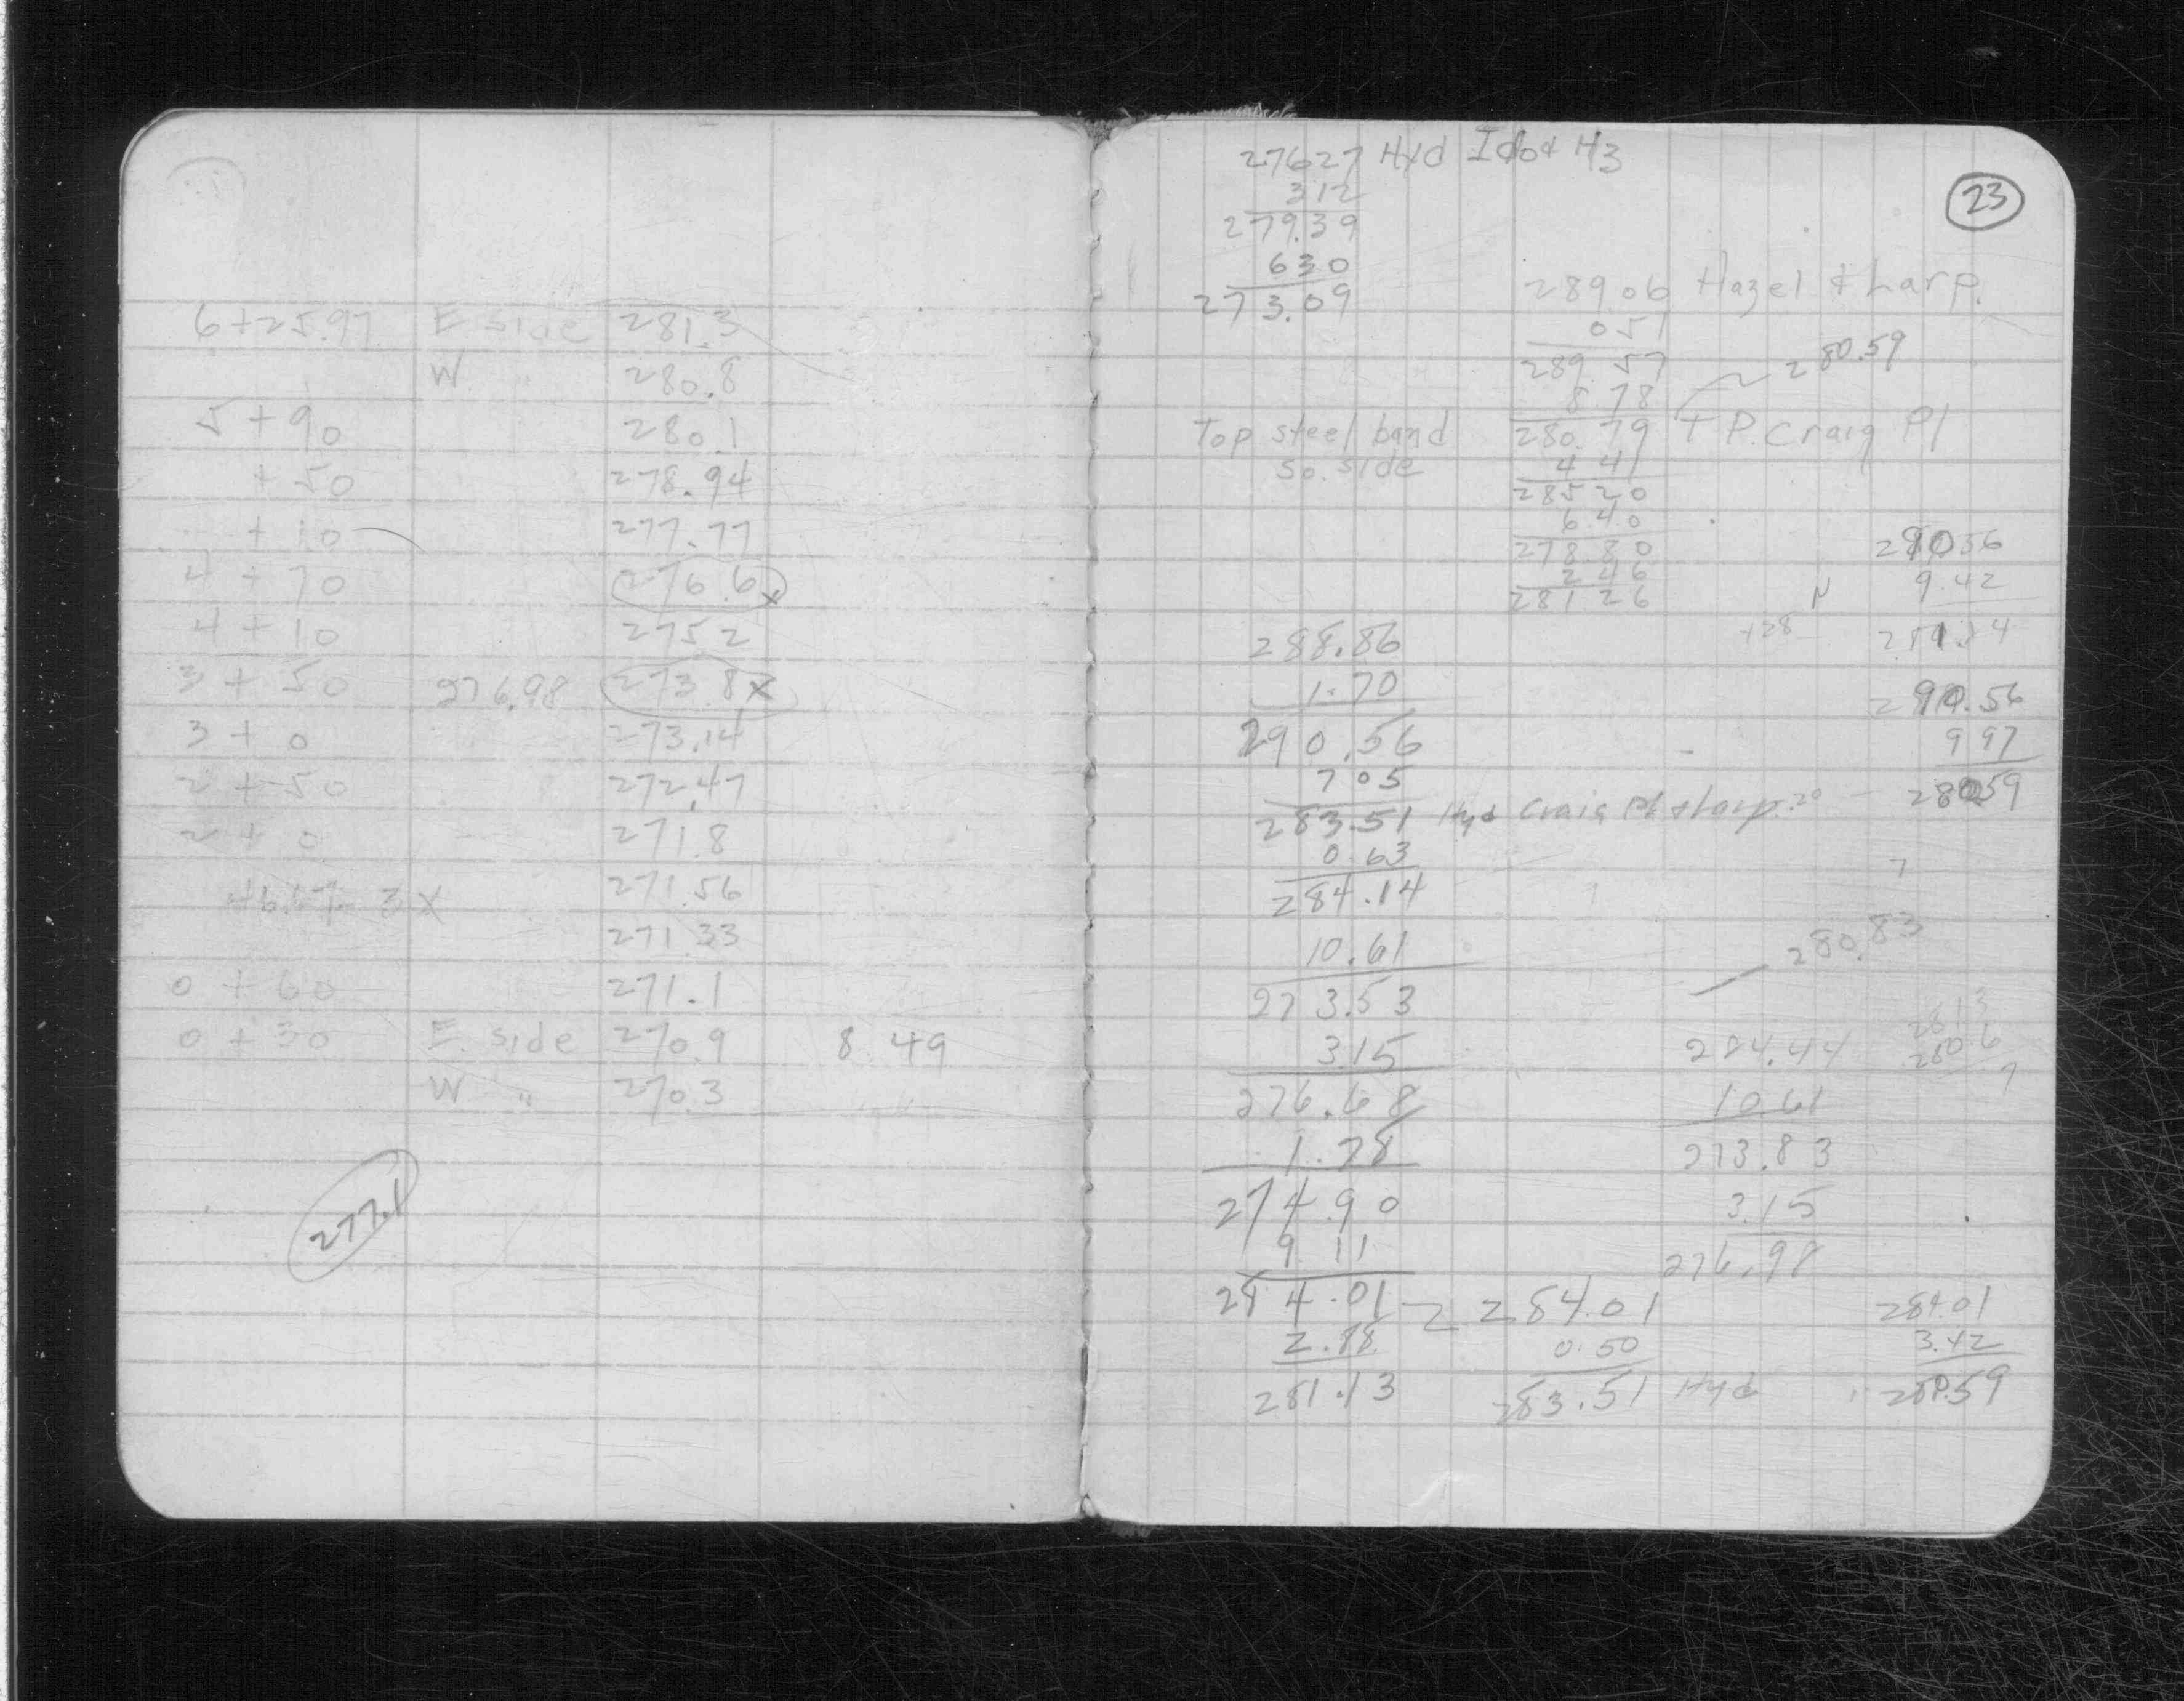 6+25.97 E side 281.3
W. 280.8
5+90 280.1
+50 278.94
+10 277.77
4+70 276.6x
4+10 275.2
3+50 276.98 273.8x
3+0 273.14
2+50 272.47
2+0 271.8
271.56
271.33
0+60 271.1
0+30 E. side 270.9 8 49
W " 270.3
277.1
23
27627 Hyd
312
279.39
630
273.09
28906 Hazel & Larp.
051
289 57
8.78
280.59
Top steel band
so. side
280.79 T P. Craig Pl
4 41
285 20
6 40
278.80
2 46
281 26
288.86
1.70
290.56
7 05
283.51 Hyd Craig Pl & Larp
0.63
284.14
10.61
273.53
3.15
276.68
1.78
274.90
9 11
284.01
2.88
281.13
284.01
0.50
283.51 Hyd
29056
9.42
N
+28
290.56
9 97
28059
7
280.83
2813
280 6
7
284.44
10.61
273.83
3.15
276.98
284.01
3.42
280.59